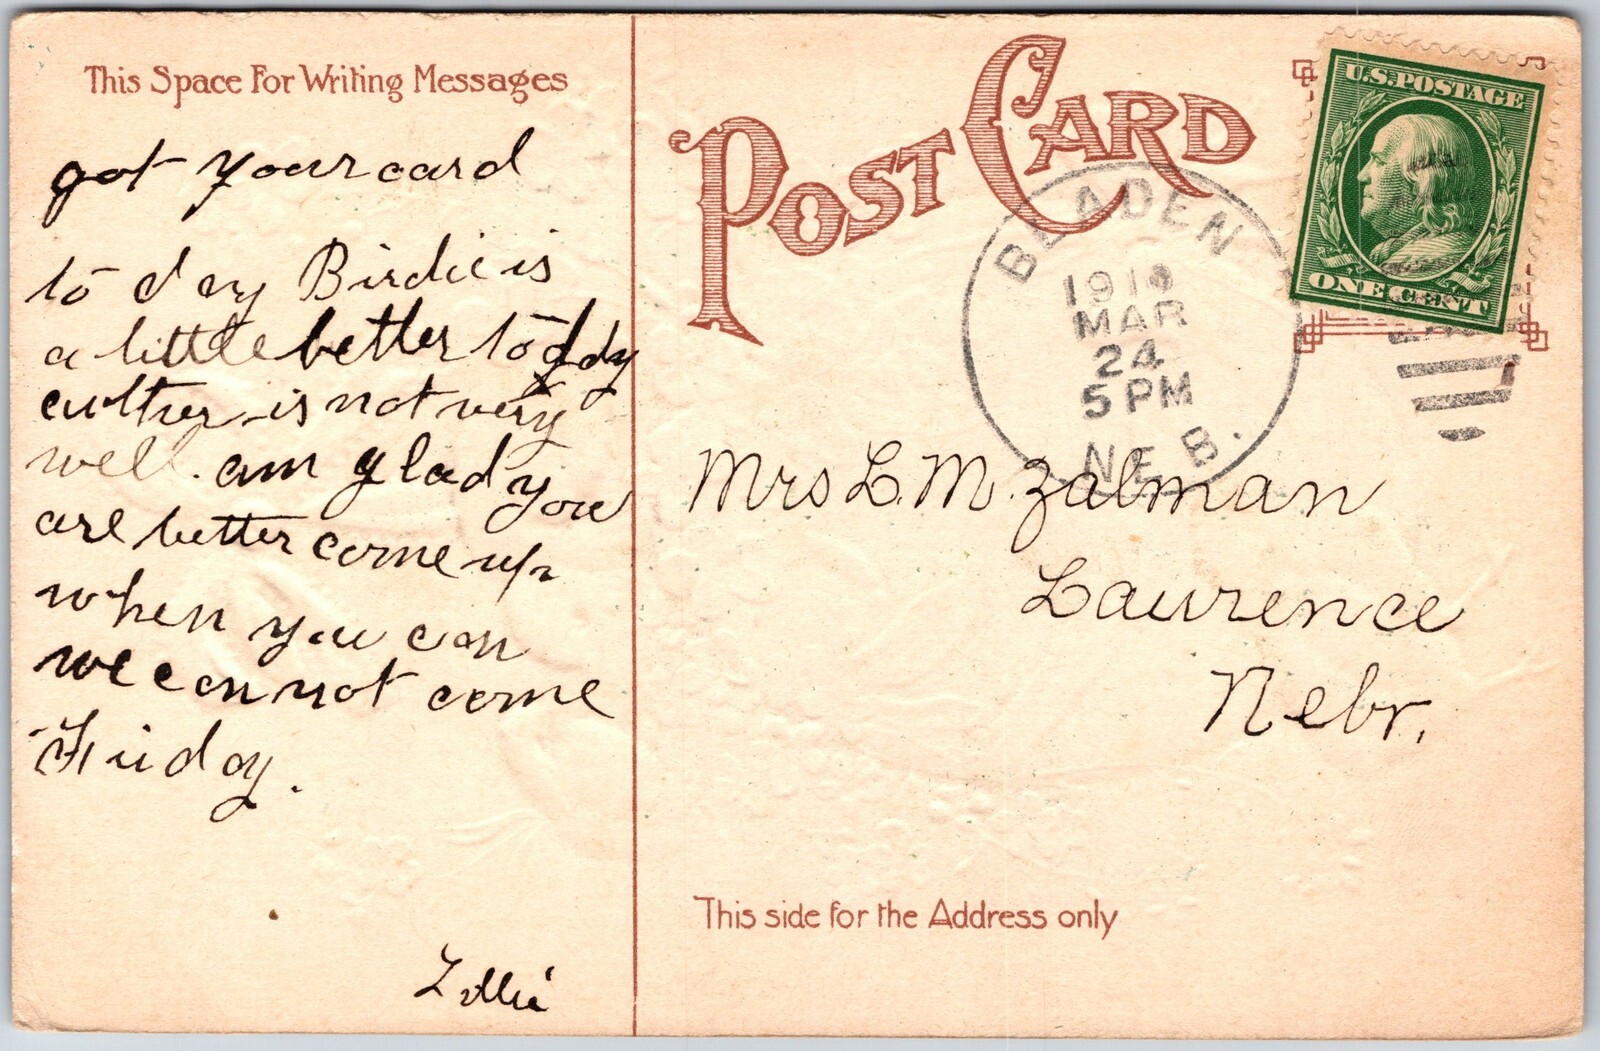 This Space For Writing Messages
got your card
to day Birdie is
a little better to
is not very
well. am glad you
are better come up
when you can
we can not come
Friday.
POST CARD
BLADEN
MAR
24
5 PM
NEB.
U.S. POSTAGE
ONE CENT
Mrs L. M. Zalman
Laurence
Nebr.
This side for the Address only